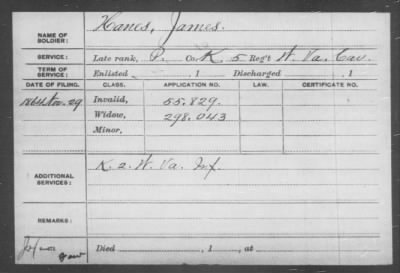 NAME OF SOLDIER: Hanes, James.
SERVICE: Late rank, P. Co. K 5 Reg't W. Va. Cav.
TERM OF SERVICE: Enlisted , 1 Discharged , 1
DATE OF FILING. CLASS. APPLICATION NO. LAW. CERTIFICATE NO.
1864 Nov. 29 Invalid, 55.829.
Widow, 298.043
Minor,
ADDITIONAL SERVICES: K. 2. W. Va. Inf.
REMARKS:
Died , 1 , at